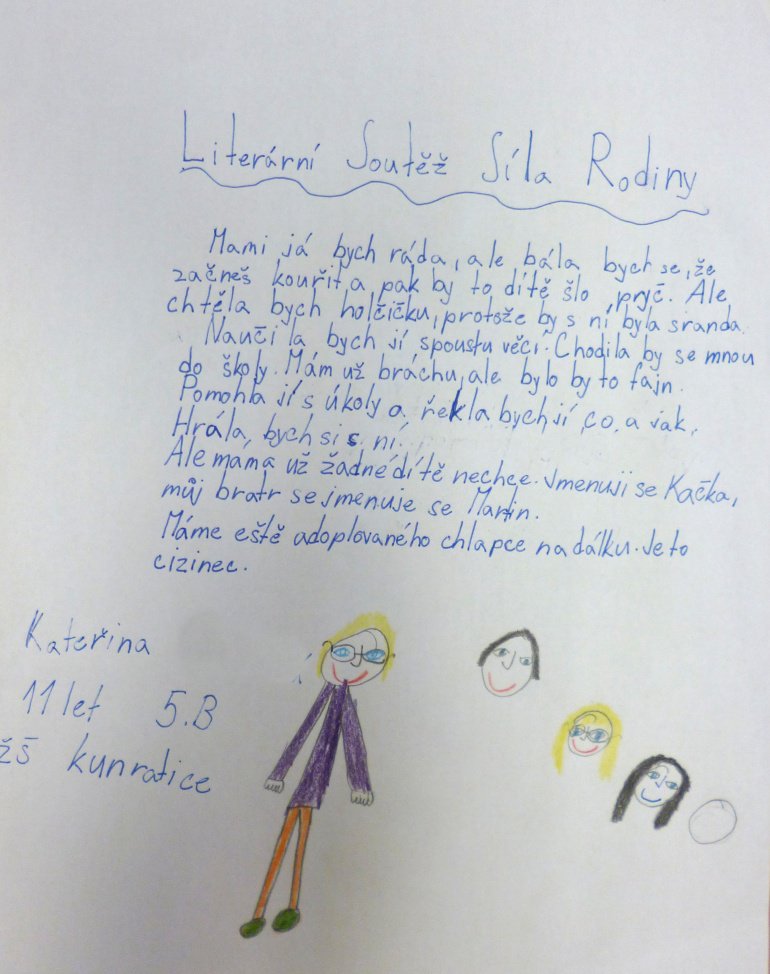 Literární Soutěž Síla Rodiny
Mami já bych ráda, ale bála bych se, že
začneš kouřit a pak by to dítě šlo pryč. Ale
chtěla bych holčičku, protože by s ní byla sranda.
Naučila bych jí spoustu věcí. Chodila by se mnou
do školy. Mám už bráchu, ale bylo by to fajn.
Pomohla jí s úkoly a řekla bych jí, co, a jak.
Hrála, bych si s ní.
Ale mama už žádné dítě nechce. Jmenuji se Kačka,
můj bratr se jmenuje se Martin.
Máme eště adoplovaného chlapce na dálku. Je to
cizinec.
Kateřina
11 let 5.B
ZŠ kunratice